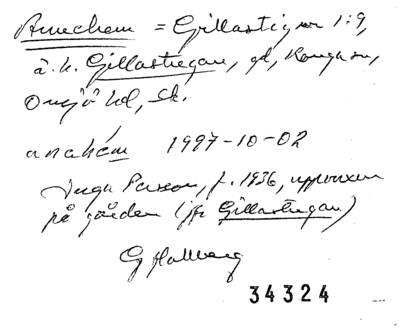 Annehem = Gillastigen 1:9,
ä.k. Gillastugan, gd, Konga sn,
Onsjö hd, Sk.
anahém 1997-10-02
Inga Persson, f. 1936, uppvuxen
på gården (jfr Gillastugan)
G Hallberg
34324